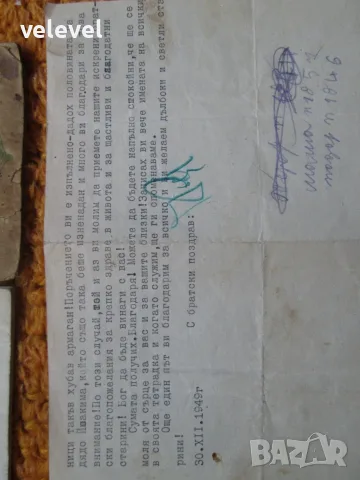 velevel
ници такъв хубав армаган!Поръчението ви е изпълнено-дадох половината на
дядо Йоакима, който също така беше изненадан и много ви благодари за това
внимание!По този случай, той и аз ви молим да приемете нашите искренни брат-
ски благопожелания за крепко здраве в живота и за щастливи и благодатни
старини! Бог да бъде винаги с вас!
Сумата получих.Благодаря! Можете да бъдете напълно спокойни, че ще се
моля от сърце за вас и за вашите близки!Записах ви вече имената на всички
в своята тетрадка и когато служим, ще ги поменаваме.
Още един път ви благодарим за всичко и ви желаем дълбоки и светли ста-
рини!
С братски поздрав:
30.XII.1949г
bazar